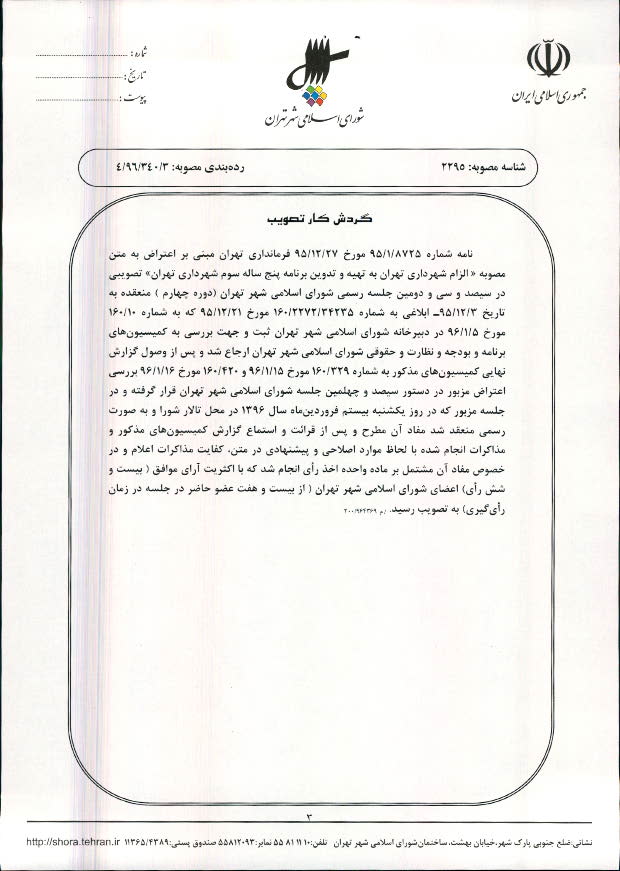 جمهوری اسلامی ایران
شورای اسلامی شهر تهران
شماره :
تاریخ :
پیوست :
شناسه مصوبه: ۲۲۹۵
رده‌بندی مصوبه: ۴/۹۶/۳۴۰/۳
گردش کار تصویب
نامه شماره ۹۵/۱/۸۷۲۵ مورخ ۹۵/۱۲/۲۷ فرمانداری تهران مبنی بر اعتراض به متن
مصوبه « الزام شهرداری تهران به تهیه و تدوین برنامه پنج ساله سوم شهرداری تهران» تصویبی
در سیصد و سی و دومین جلسه رسمی شورای اسلامی شهر تهران (دوره چهارم ) منعقده به
تاریخ ۹۵/۱۲/۳ـ ابلاغی به شماره ۱۶۰/۲۲۷۲/۳۴۲۳۵ مورخ ۹۵/۱۲/۲۱ که به شماره ۱۶۰/۱۰
مورخ ۹۶/۱/۵ در دبیرخانه شورای اسلامی شهر تهران ثبت و جهت بررسی به کمیسیون‌های
برنامه و بودجه و نظارت و حقوقی شورای اسلامی شهر تهران ارجاع شد و پس از وصول گزارش
نهایی کمیسیون‌های مذکور به شماره ۱۶۰/۳۲۹ مورخ ۹۶/۱/۱۵ و ۱۶۰/۴۲۰ مورخ ۹۶/۱/۱۶ بررسی
اعتراض مزبور در دستور سیصد و چهلمین جلسه شورای اسلامی شهر تهران قرار گرفته و در
جلسه مزبور که در روز یکشنبه بیستم فروردین‌ماه سال ۱۳۹۶ در محل تالار شورا و به صورت
رسمی منعقد شد مفاد آن مطرح و پس از قرائت و استماع گزارش کمیسیون‌های مذکور و
مذاکرات انجام شده با لحاظ موارد اصلاحی و پیشنهادی در متن، کفایت مذاکرات اعلام و در
خصوص مفاد آن مشتمل بر ماده واحده اخذ رأی انجام شد که با اکثریت آرای موافق ( بیست و
شش رأی) اعضای شورای اسلامی شهر تهران ( از بیست و هفت عضو حاضر در جلسه در زمان
رأی‌گیری) به تصویب رسید. /م ۲۰۰/۹۶۴۳۶۹
۳
نشانی:ضلع جنوبی پارک شهر،خیابان بهشت، ساختمان‌شورای اسلامی شهر تهران تلفن:۱۰ ۱۱ ۸۱ ۵۵ نمابر:۵۵۸۱۲۰۹۳ صندوق پستی:۱۱۳۶۵/۴۳۸۹ http://shora.tehran.ir